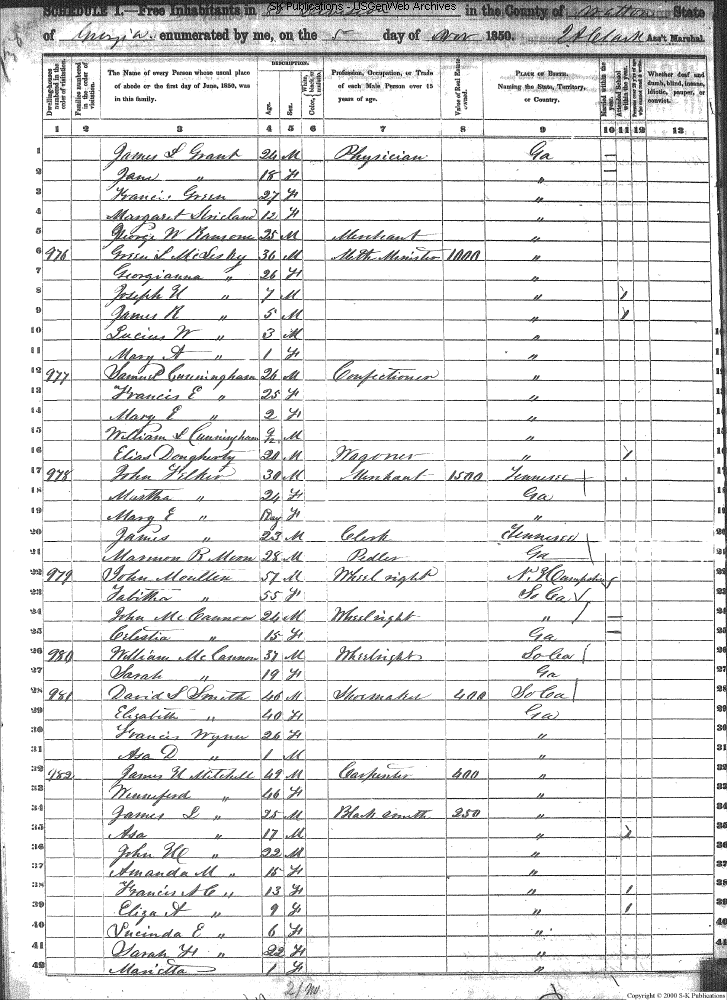 S-K Publications - USGenWeb Archives
SCHEDULE I.—Free Inhabitants in in the County of Walton State
of Georgia enumerated by me, on the 5 day of Nov 1850. Ass't Marshal.
Dwelling-houses numbered in the order of visitation.
Families numbered in the order of visitation.
The Name of every Person whose usual place of abode on the first day of June, 1850, was in this family.
DESCRIPTION.
Age.
Sex.
Color,
Profession, Occupation, or Trade of each Male Person over 15 years of age.
Value of Real Estate owned.
PLACE OF BIRTH. Naming the State, Territory, or Country.
Married within the year.
Attended School within the year.
Whether deaf and dumb, blind, insane, idiotic, pauper, or convict.
1 2 3 4 5 6 7 8 9 10 11 12 13
1 James L Grant 24 M Physician Ga —
2 Jane " 18 F " —
3 Francis Green 27 F "
4 Margaret Stricland 12 F "
5 George W Ransome 25 M Merchant "
6 976 Green L McLesky 36 M Meth Minister 1000 "
7 Georgianna " 26 F "
8 Joseph H " 7 M " 1
9 James R " 5 M " 1
10 Lucius W " 3 M "
11 Mary A " 1 F "
12 977 Samuel Cunningham 26 M Confectioner "
13 Francis E " 25 F "
14 Mary E " 2 F "
15 William L Cunningham 9/12 M "
16 Elias Dougherty 20 M Wagoner " 1
17 978 John Felker 30 M Merchant 1500 Tennessee
18 Martha " 24 F Ga
19 Mary E " F "
20 James " 23 M Clerk Tennessee
21 Marmon R 28 M Pedler Ga
22 979 John Moulten 57 M Wheel right N. Hampshire
23 Tabitha " 55 F So Ca
24 John McCannon 24 M Wheelright " —
25 Celestia " 15 F Ga —
26 980 William McCannon 37 M Wheelright So Ca
27 Sarah " 19 F Ga
28 981 David S Smith 46 M Shoemaker 400 So Ca
29 Elizabeth " 40 F Ga
30 Francis Wynn 26 F "
31 Asa D " 1 M "
32 982 James H Mitchell 49 M Carpenter 400 "
33 Winneford " 46 F "
34 James L " 25 M Black smith 250 "
35 Asa " 17 M " 1
36 John W " 22 M "
37 Amanda M " 15 F "
38 Francis A C " 13 F " 1
39 Eliza A " 9 F " 1
40 Lucinda E " 6 F "
41 Sarah F " 22 F "
42 Marietta 1 F "
21 M
Copyright © 2000 S-K Publications